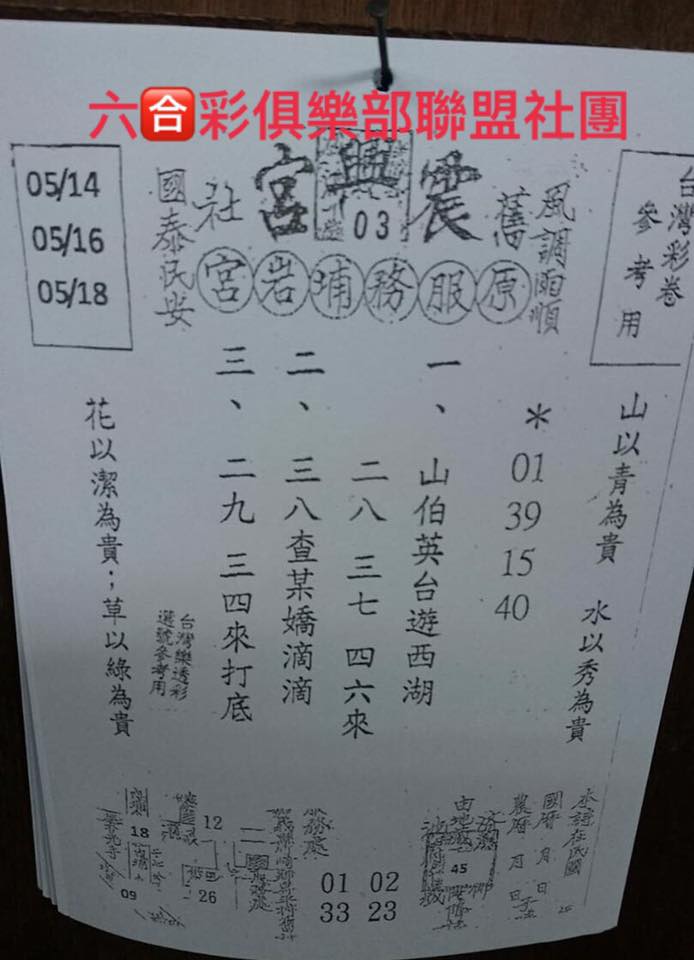 六合彩俱樂部聯盟社團
台灣彩卷
參考用
風調雨順
舊
震興宮
03
社
國泰民安
05/14
05/16
05/18
原服務埔岩宮
山以青為貴 水以秀為貴
*
01
39
15
40
一、山伯英台遊西湖
二八 三七 四六來
二、三八查某嬌滴滴
三、二九 三四來打底
台灣樂透彩
選號參考用
花以潔為貴；草以綠為貴
國曆 月 日
農曆 月 日
45
服務處
01 02
33 23
12
26
18
09